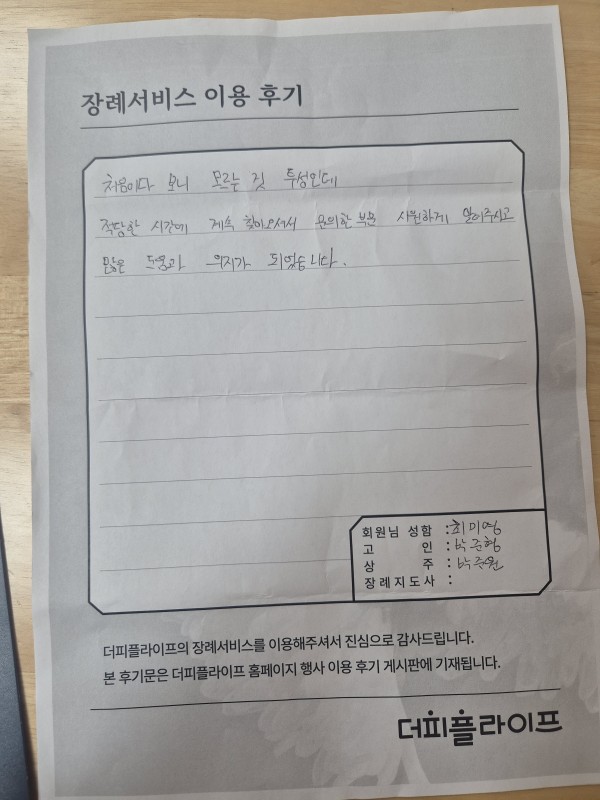 장례서비스 이용 후기
처음이다 보니 모르는 것 투성인데
적당한 시간에 계속 찾아오셔서 문의한 부분 시원하게 알려주시고
많은 도움과 의지가 되었습니다.
회원님 성함 : 최미영
고 인 : 박준형
상 주 : 박주원
장례지도사 :
더피플라이프의 장례서비스를 이용해주셔서 진심으로 감사드립니다.
본 후기문은 더피플라이프 홈페이지 행사 이용 후기 게시판에 기재됩니다.
더피플라이프